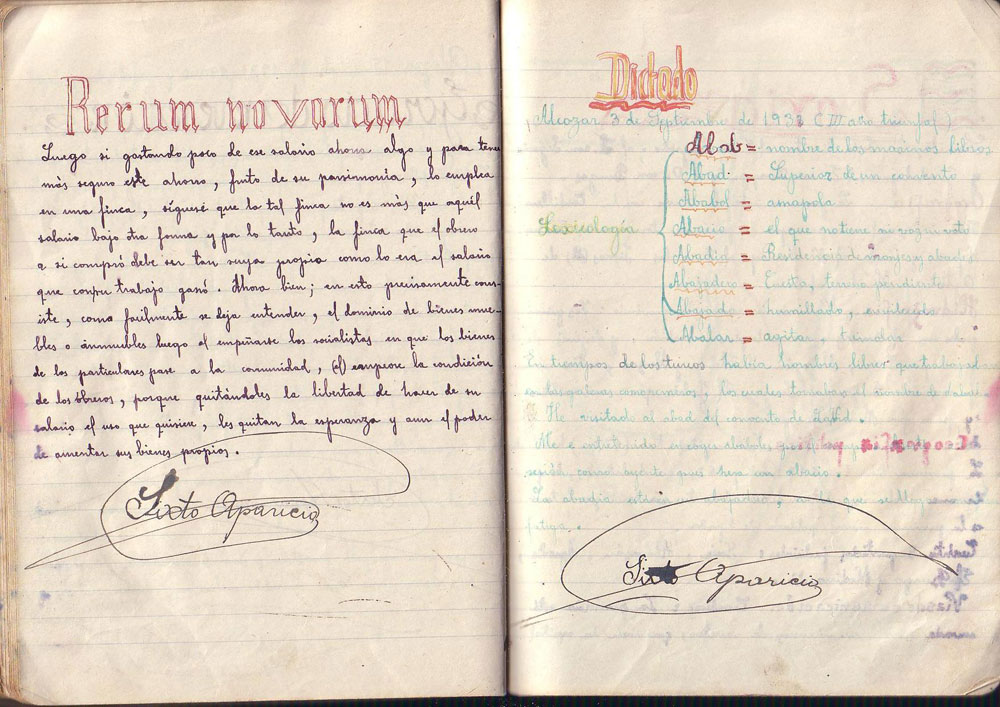 Rerum novarum
Luego si gastando poco de ese salario ahorra algo y para tener
más seguro este ahorro, fruto de su parsimonia, lo emplea
en una finca, síguese que la tal finca no es más que aquél
salario bajo otra forma y por lo tanto, la finca que el obrero
a si compró debe ser tan suya propia como lo era el salario
que con su trabajo ganó. Ahora bien; en esto precisamente cons-
iste, como facilmente se deja entender, el dominio de bienes mue-
bles o inmuebles luego al empeñarse los socialistas en que los bienes
de los particulares pase a la comunidad, empeora la condición
de los obreros, porque quitándoles la libertad de hacer de su
salario el uso que quisiere, les quitan la esperanza y aun el poder
de amentar sus bienes propios.
Sixto Aparicio
Dictado
Alcozar 3 de Septiembre de 193 (III año triunfal)
Lexicología
Abab = nombre de los marineros libres
Abad = Superior de un convento
Ababol = amapola
Abacio = el que no tiene ni voz ni voto
Abadia = Residencia de monjes y abades
Abajadero = Cuesta, terreno pendiente
Abajado = humillado, envilecido
Abalar = agitar, tremolar
En tiempos de los turcos había hombres libres que trabajab
en las galeras los cuales tomaban el nombre de abab
He visitado al abad del convento de
Me e entretenido en coger ababoles
sesión como oyente pues hera un abacio.
La abadia que se llega
fatiga.
Sixto Aparicio